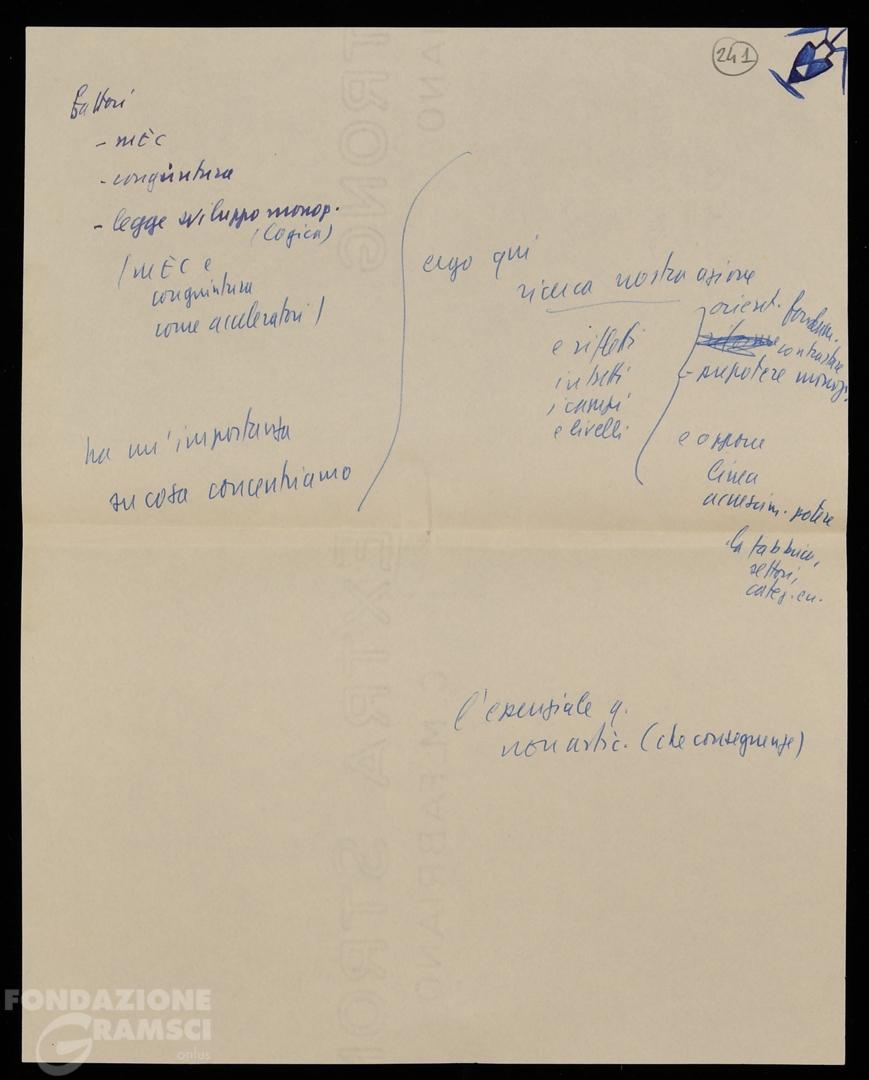 241
Fattori
- MEC
- congiuntura
- legge sviluppo monop.
(logica)
(MEC e
congiuntura
come acceleratori)
ha un'importanza
su cosa concentriamo
ergo qui
ricerca nostra azione
e riflessi
i campi
e livelli
orient. fondam.
contrastare
- strapotere monop.
e oppone
linea
accrescim. potere
la fabbrica,
settori,
categ. ecc.
l'essenziale q.
non artic. (che conseguenze)
EXTRA STRONG
C.M.FABRIANO
FONDAZIONE
GRAMSCI
onlus